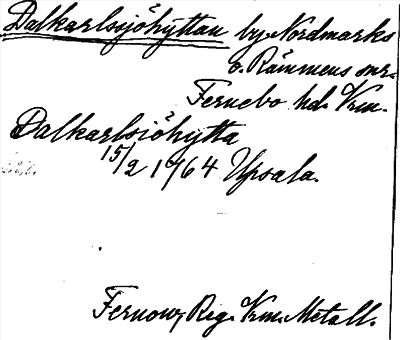 Dalkarlssjöhyttan by. Nordmarks
o. Rämmens snr.
Fernebo hd. Vrm.
Dalkarlsiöhytta
15/2 1764 Upsala.
Fernow, Reg. Vrm. Metall.